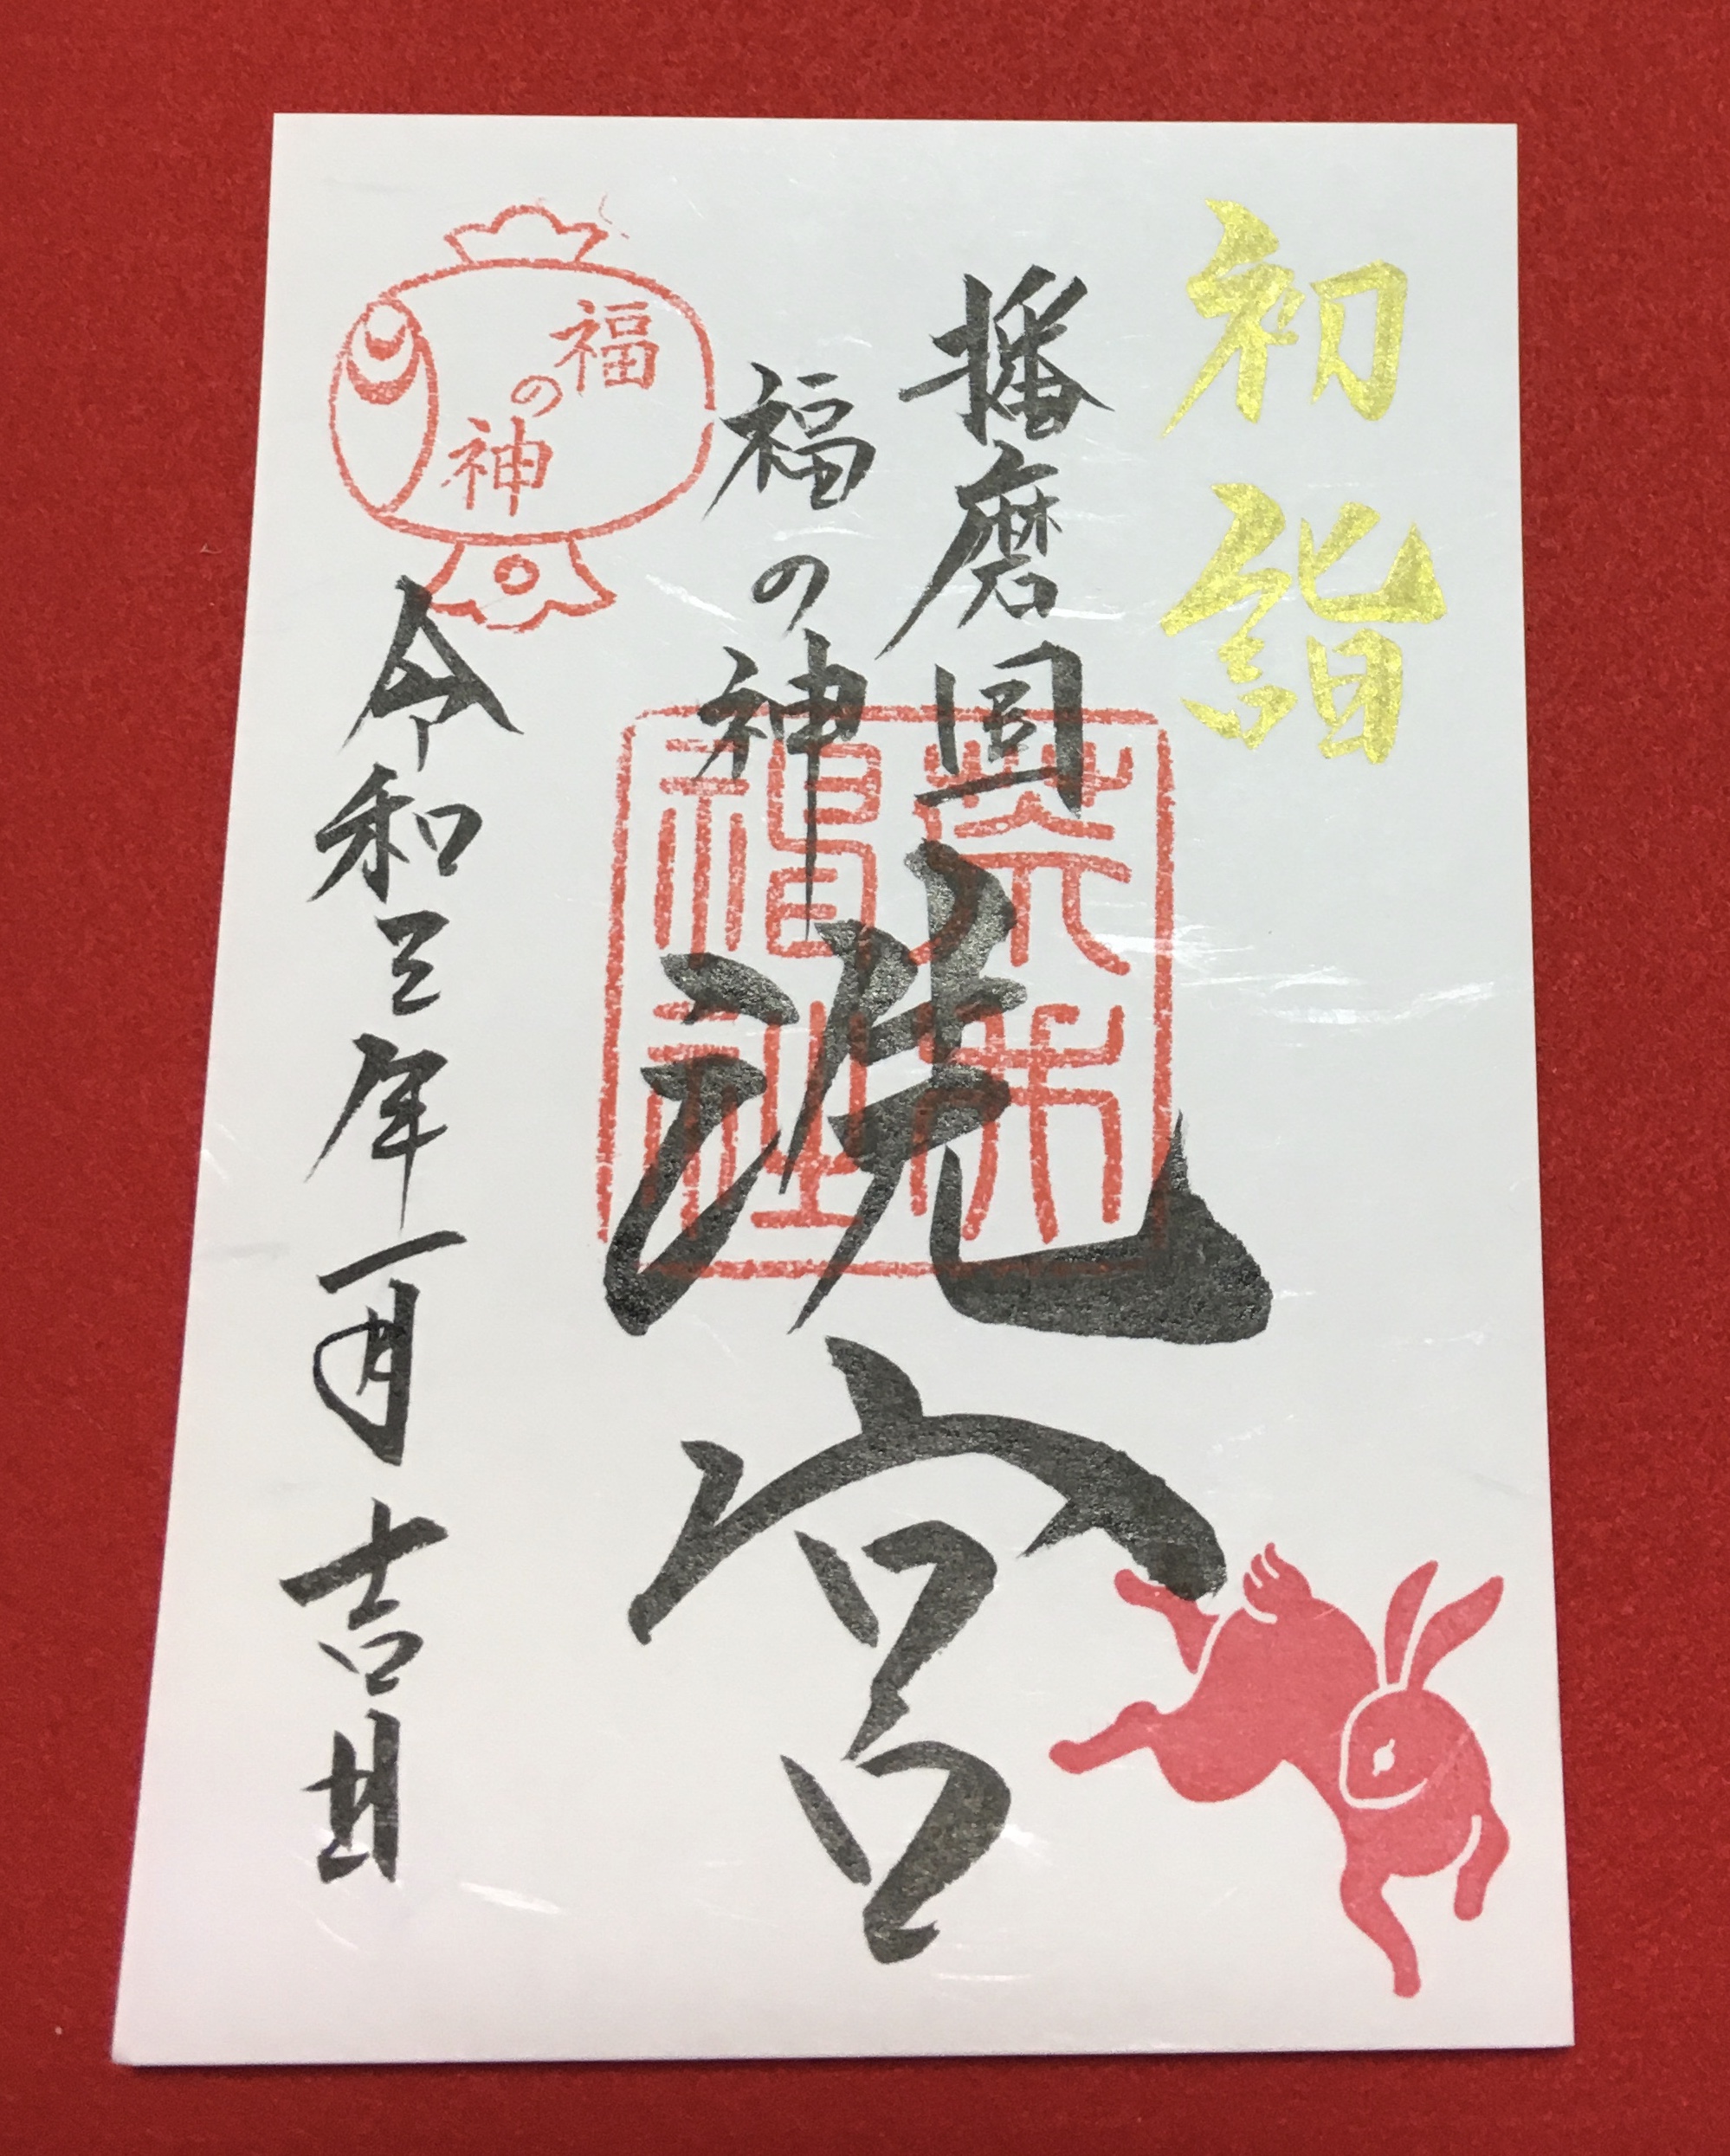 初詣
播磨国
福の神
洗宮
福の神
令和三年一月吉日